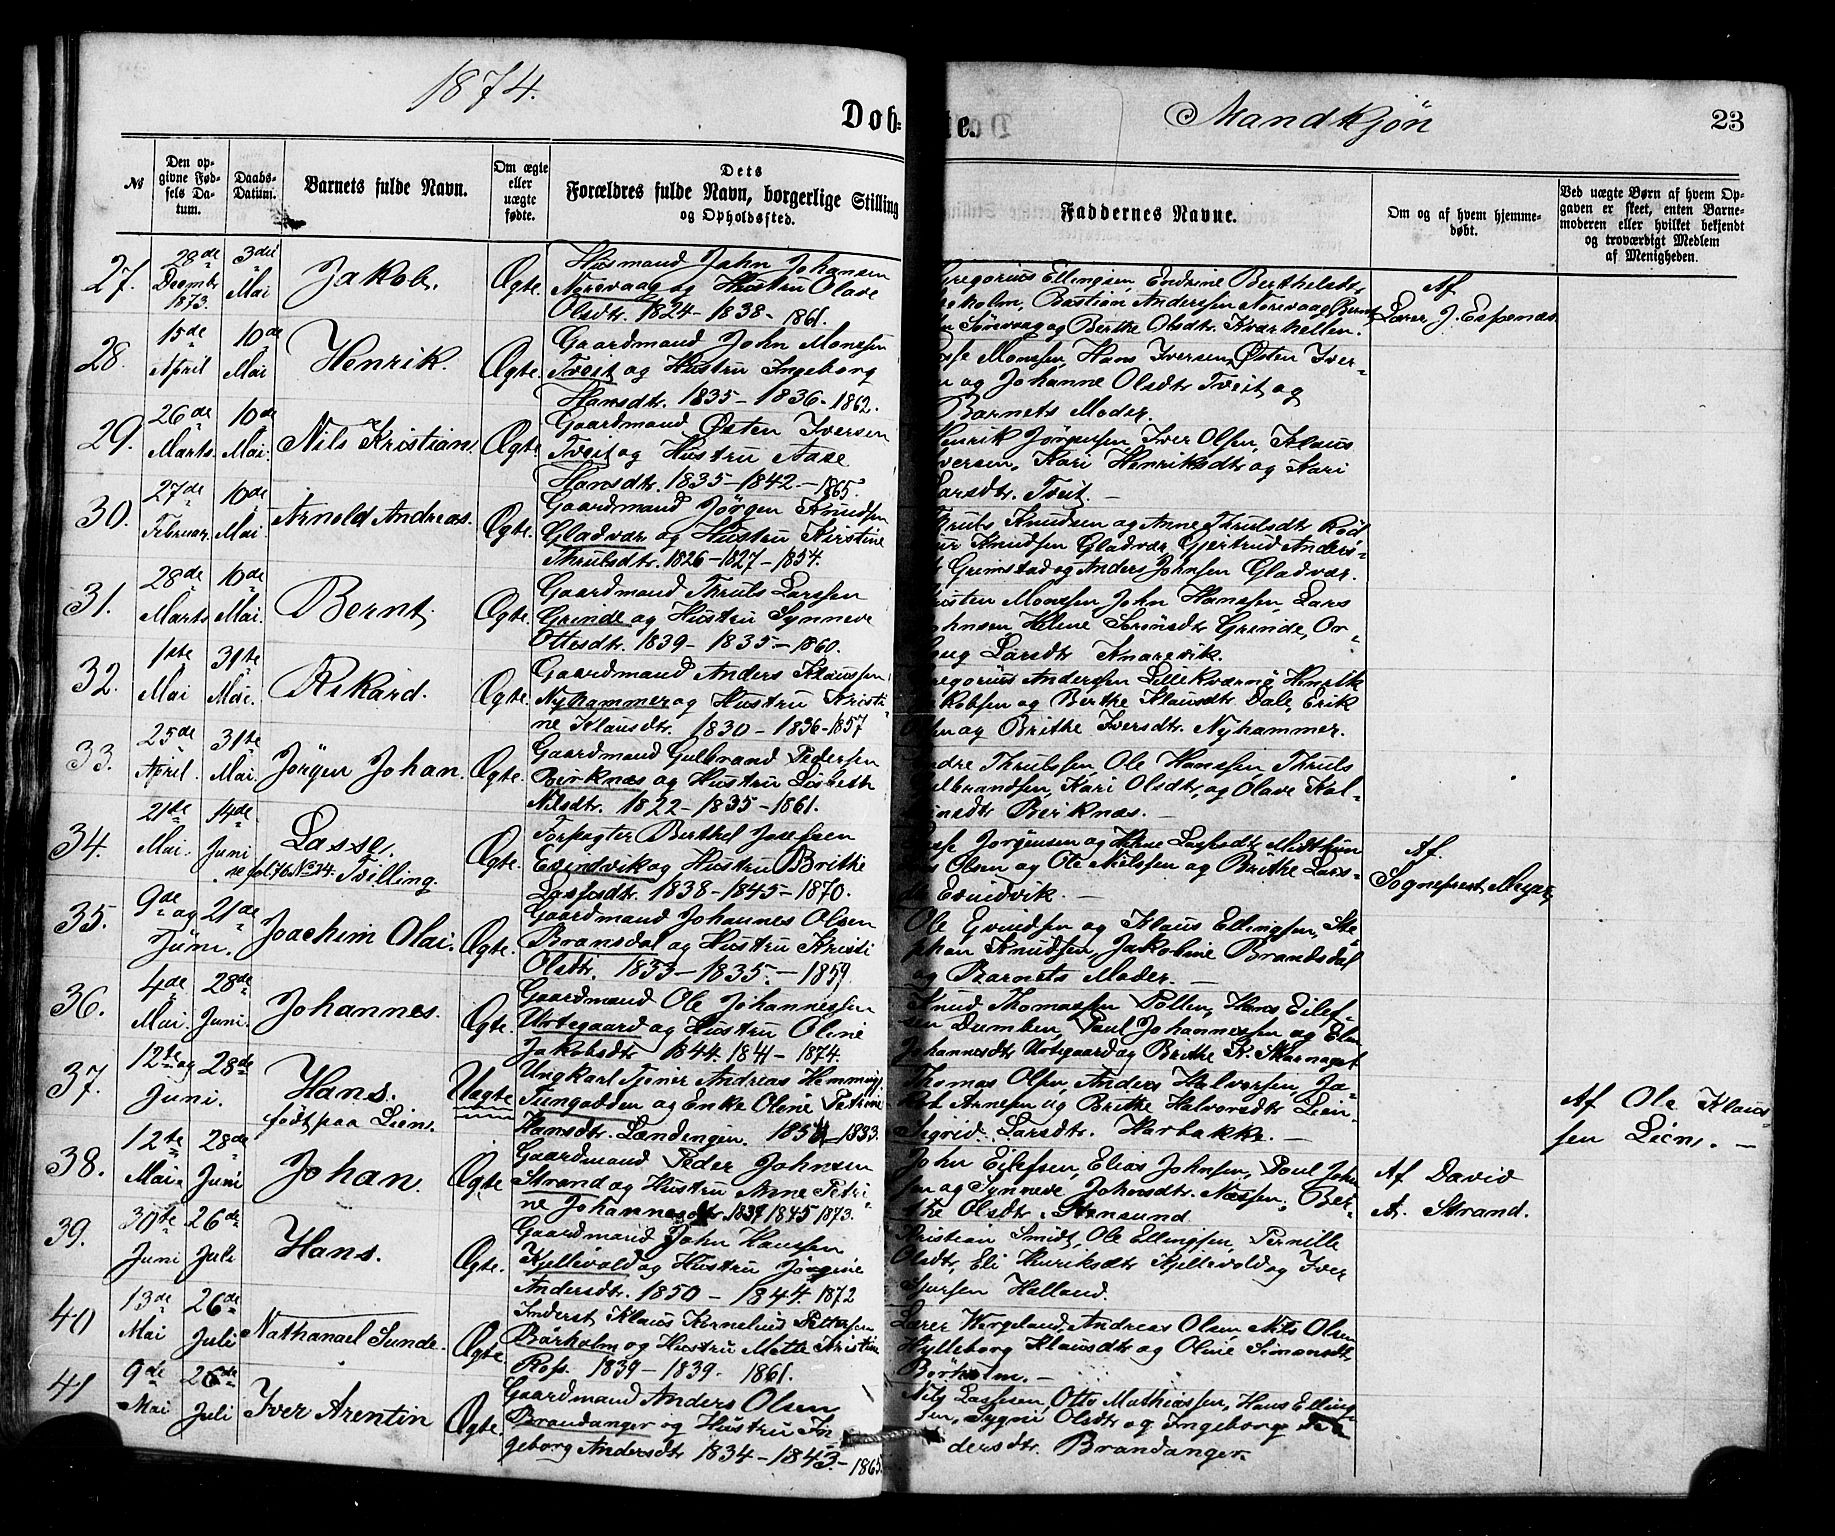 1874.
Døb=
te.
Mandkjøn
23
№
Den op-
givne Fød-
sels Da-
tum.
Daabs-
Datum.
Barnets fulde Navn.
Om ægte
eller
uægte
fødte.
Dets
Forældres fulde Navn, borgerlige Stilling
og Opholdssted.
Faddernes Navne.
Om og af hvem hjemme-
døbt.
Ved uægte Børn af hvem Op-
gaven er skeet, enten Barne-
moderen eller hvilket bekjendt
og troværdigt Medlem
af Menigheden.
27.
28de
Decmbr
1873.
3die
Mai
Jakob.
Ægte.
Husmand John Johansen
Nørevaag og Hustru Olave
Olsdtr. 1824 - 1838 - 1861.
Gregorius Ellingsen, Endrine Bertheldtr
holm, Bastian Andersen Nørevaag,
Sørevaag og Berthe Olsdtr. Kvarhellen.
Af
Lærer J. Espenæs
28.
15de
April
10de
Mai
Henrik.
Ægte.
Gaardmand John Monssen
Tveit og Hustru Ingeborg
Hansdtr. 1835 - 1836 - 1862.
Lasse Monssen, Hans Iversen, Østen Iver-
sen og Johanne Olsdtr Tveit og
Barnets Moder.
29.
26de
Marts
10de
Mai.
Nils Kristian.
Ægte.
Gaardmand Østen Iversen
Tveit og Hustru Aase
Hansdtr. 1835 - 1842 - 1865.
Henrik Jørgensen, Iver Olsen, Klaus
Iversen, Kari Henriksdtr og Kari
Larsdtr. Tveit. -
30.
27de
Februar.
10de
Mai.
Arnold Andreas.
Ægte.
Gaardmand Jørgen Knudsen
Gladvær og Hustru Kirstine
Thrulsdtr. 1826 - 1827 - 1854.
Thruls Knudsen og Anne Thrulsdtr
Knudsen Gladvær, Gjertrud Anders-
dtr Grimstad og Anders Johnsen Gladvær.
31.
28de
Marts
10de
Mai.
Bernt.
Ægte.
Gaardmand Thruls Larssen
Grinde og Hustru Synneve
Ottesdtr. 1839 - 1835 - 1860.
Kristen Monssen, John Hanssen, Lars
Johnsen, Helene Sørensdtr Grinde,
Larsdtr Knarrvik.
32.
1ste
Mai
31te
Mai.
Rikard.
Ægte.
Gaardmand Anders Klaussen
Nyhammer og Hustru Kristi-
ne Klausdtr. 1830 - 1836 - 1857
Gregorius Anderssen Lillekværnø Henrik
Jakobsen og Berthe Klausdtr Dale, Erik
Olsen og Brithe Iversdtr. Nyhammer.
33.
25de
April.
31te
Mai.
Jørgen Johan.
Ægte.
Gaardmand Gulbrand Pedersen
Berknæs og Hustru Lisbeth
Nilsdtr. 1822 - 1835 - 1861.
Andre Thrulssen, Ole Hanssen, Thruls
Gulbrandsen, Kari Olsdtr, og Olave Kol-
beinsdtr Berknæs. -
34.
21te
Mai.
14de
Juni
Lasse.
se fol. 76 No 24. Tvilling.
Ægte.
Forpagter Berthel Josefsen
Evindvik og Hustru Brithe
Lassesdtr. 1838 - 1845 - 1870.
Lasse Jørgensen og Helene Lassesdtr Midttun
Olsen og Ole Nielssen og Brithe Lars-
dtr Evindvik. -
Af.
Sogneprest Meyer
35.
9de og
Juni.
21de
Joachim Olai.
Ægte.
Gaardmand Johannes Olsen
Bransdal og Hustru Kristi
Olsdtr. 1833 - 1835. - 1859.
Ole Gvindsen og Klaus Ellingsen, Ste-
phan Knudsen, Jakobine Brandsdal
og Barnets Moder. -
36.
4de
Mai.
28de
Juni.
Johannes.
Ægte.
Gaardmand Ole Johannessen
Urtegaard og Hustru Oline
Jakobsdtr 1844. 1841 - 1874.
Knud Thomassen Pollen, Hans Eilef-
sen Dumben, Paul Johannessen og Eline
Johannesdtr Urtegaard og Brithe K. Skarnaget
37.
12te og
Juni.
28de
Hans.
født paa Lien.
Uægte
Ungkarl Tjener Andreas Hemmings
Tungodden og Enke Oline Petrine
Hansdtr. Lændingen. 1851 - 1833.
Thomas Olsen, Anders Halvorsen, Ja-
kob Arnesen og Brithe Halvorsdtr Lien
Sigrid Larsdtr. Harbakke. -
Af Ole Klaus-
sen Lien. -
38.
12te
Mai.
28de
Juni
Johan.
Ægte
Gaardmand Peder Johnsen
Strand og Hustru Anne Petri-
ne Johannesdtr. 1837 1845 1873.
John Eilefsen, Elias Johnsen, Paul John-
sen og Synneve Johnsdtr. Næssen, Ber-
the Olsdtr. Stensund
Af David
A. Strand.
39.
30te
Juni
26de
Juli
Hans.
Ægte.
Gaardmand John Hanssen
Kjellevold og Hustru Jørgine
Andersdtr. 1850 - 1844. 1872
Kristian Smidt, Ole Ellingsen, Pernille
Olsdtr, Eli Henriksdtr Kjellevold og Iver
Sjursen Halland.
40
13de
Mai
26de
Juli
Nathanael Sunde.
Ægte
Inderst Klaus Kornelius Pettersen
Børholm og Hustru Mette Kristine
Rose. 1839 - 1839. 1861.
Lærer Hergeland, Andreas Olsen, Nils Olsen
Hylleborg Klausdtr og Oline Simonsdtr
Børholm. -
41
9de
Mai
26de
Juli
Iver Arentin
Ægte.
Gaardmand Anders Olsen
Brandanger og Hustru In-
geborg Andersdtr 1834 - 1843. - 1865.
Nils Lassesen, Otto Mathiassen, Hans Elling-
sen, Sygni Olsdtr og Ingeborg
dersdtr. Brandanger.